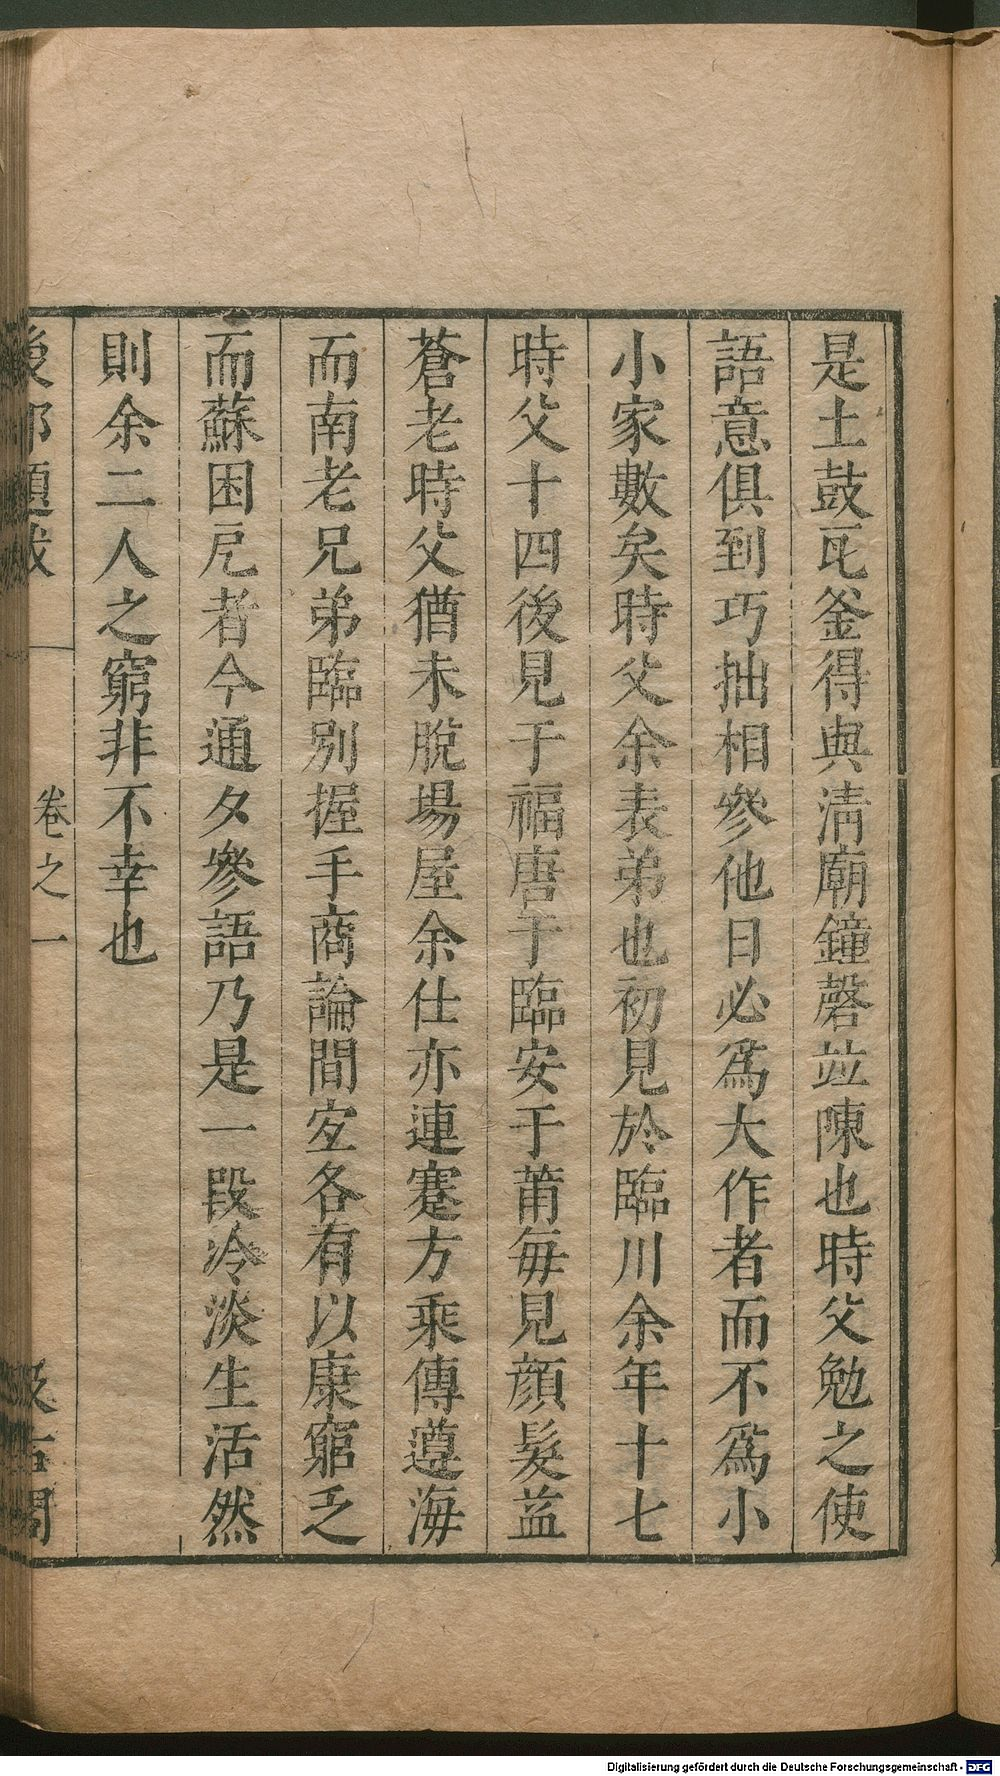 是土鼓瓦釜得與淸廟鐘磬竝陳也時父勉之使
語意俱到巧拙相參他日必爲大作者而不爲小
小家數矣時父余表弟也初見於臨川余年十七
時父十四後見于福唐于臨安于莆每見顔髮益
蒼老時父猶未脫場屋余仕亦連蹇方乘傳遵海
而南老兄弟臨別握手商論間宐各有以康窮乏
而蘇困戹者今通夕參語乃是一段冷淡生活然
則余二人之窮非不幸也
後邨題跋 卷之一 汲古閣
Digitalisierung gefördert durch die Deutsche Forschungsgemeinschaft - DFG